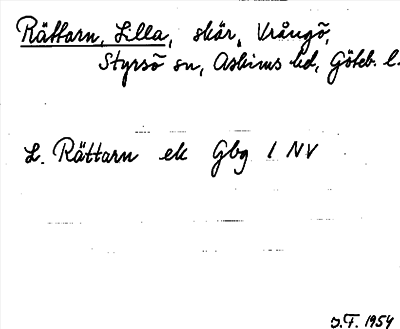 Rättarn, Lilla, skär, Vrångö,
Styrsö sn, Askims hd, Göteb. l.
L. Rättarn ek Gbg 1 NV
J.F. 1954